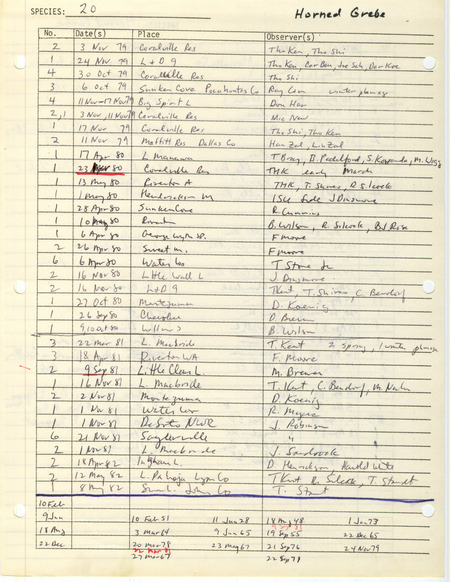 SPECIES: 20 Horned Grebe
No. Date(s) Place Observer(s)
2 3 Nov 79 Coralville Res Tho Ken, Tho Shi
1 24 Nov 79 L + D 9 Tho Ken, Car Ben, Joe Sch, Dar Koe
4 30 Oct 79 Coralville Res Tho Shi
3 6 Oct 79 Sunken Cove Pocahontas Co Ray Cum winter plumage
4 11 Nov - 17 Nov 79 Big Spirit L Don Har
2,1 3 Nov, 11 Nov 79 Coralville Res Mic New
1 17 Nov 79 Coralville Res Tho Shi, Tho Ken
2 11 Nov 79 Moffitt Res Dallas Co Han Zal, Liz Zal
1 17 Apr 80 L Manawa T Bray, B. Padelford, S. Kovanda, M. Wigg
1 23 Mar 80 Coralville Res THK early March
1 13 May 80 Riverton A THK, T. Shires, R Silcock
1 1 May 80 Henderson M J Dinsmore
1 28 Apr 80 Sunken Cove R Cummins
1 10 May 80 Riverton B. Wilson, R. Silcock, Bob Rose
1 6 Apr 80 George Wyth SP. F Moore
2 26 Apr 80 Sweet M. F Moore
6 6 Apr 80 Waterloo T Stone Jr
2 16 Nov 80 Little Wall L J Dinsmore
2 16 Nov 80 L+D 9 T Kent, T. Shires, C Bendorf
1 27 Oct 80 Montezuma D. Koenig
1 26 Sep 80 Cherokee D. Bierman
1 9,10 Oct 80 Willow S B. Wilson
3 22 Mar 81 L. Macbride T. Kent 2 spring, 1 winter plumage
3 18 Apr 81 Riverton WA F. Moore
2 9 Sep 81 Little Clear L M. Brewer
1 16 Nov 81 L. Macbride T. Kent, C. Bendorf, M. Newlon
2 2 Nov 81 Montezuma D. Koenig
1 1 Nov 81 Waterloo R. Myers
1 1 Nov 81 DeSoto NWR J. Robinson
6 21 Nov 81 Saylorville "
2 1 Nov 81 L. Macbride J. Sandrock
2 18 Apr 82 Ingham L. D. Harrison, Harold White
2 12 May 82 L. Pahoja Lyon Co T Kent, R. Silcock, T. Staudt
8 May 82 Johns Co T. Staudt
10 Feb
9 Jan 10 Feb 51 11 Jan 28 18 Aug 48 1 Jan 73
18 Aug 3 Mar 64 9 Jan 65 19 Sep 55 22 Dec 65
22 Dec 20 Mar 78 23 May 67 21 Sep 76 24 Nov 79
22 Mar 81
27 Mar 67 22 Sep 79